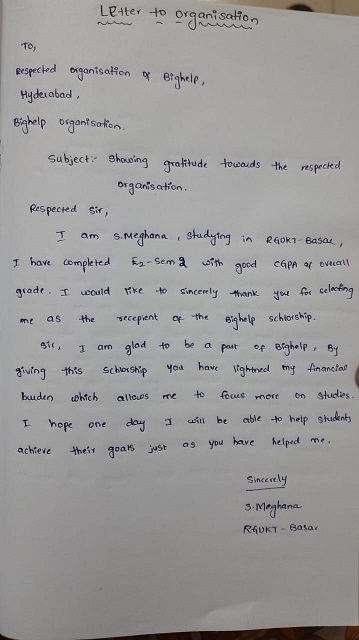 LEtter to organisation
To,
Respected organisation of Bighelp,
Hyderabad,
Bighelp organisation.
Subject:- Showing gratitude towards the respected
organisation.
Respected Sir,
I am S.Meghana, studying in RGUKT-Basar,
I have completed E2-Sem 2 with good CGPA of overall
grade. I would like to sincerely thank you for selecting
me as the recepient of the Bighelp schlorship.
Sir, I am glad to be a part of Bighelp, By
giving this Schlorship you have lightned my financial
burden which allows me to focus more on studies.
I hope one day I will be able to help students
achieve their goals just as you have helped me.
Sincerely
S.Meghana
RGUKT-Basar